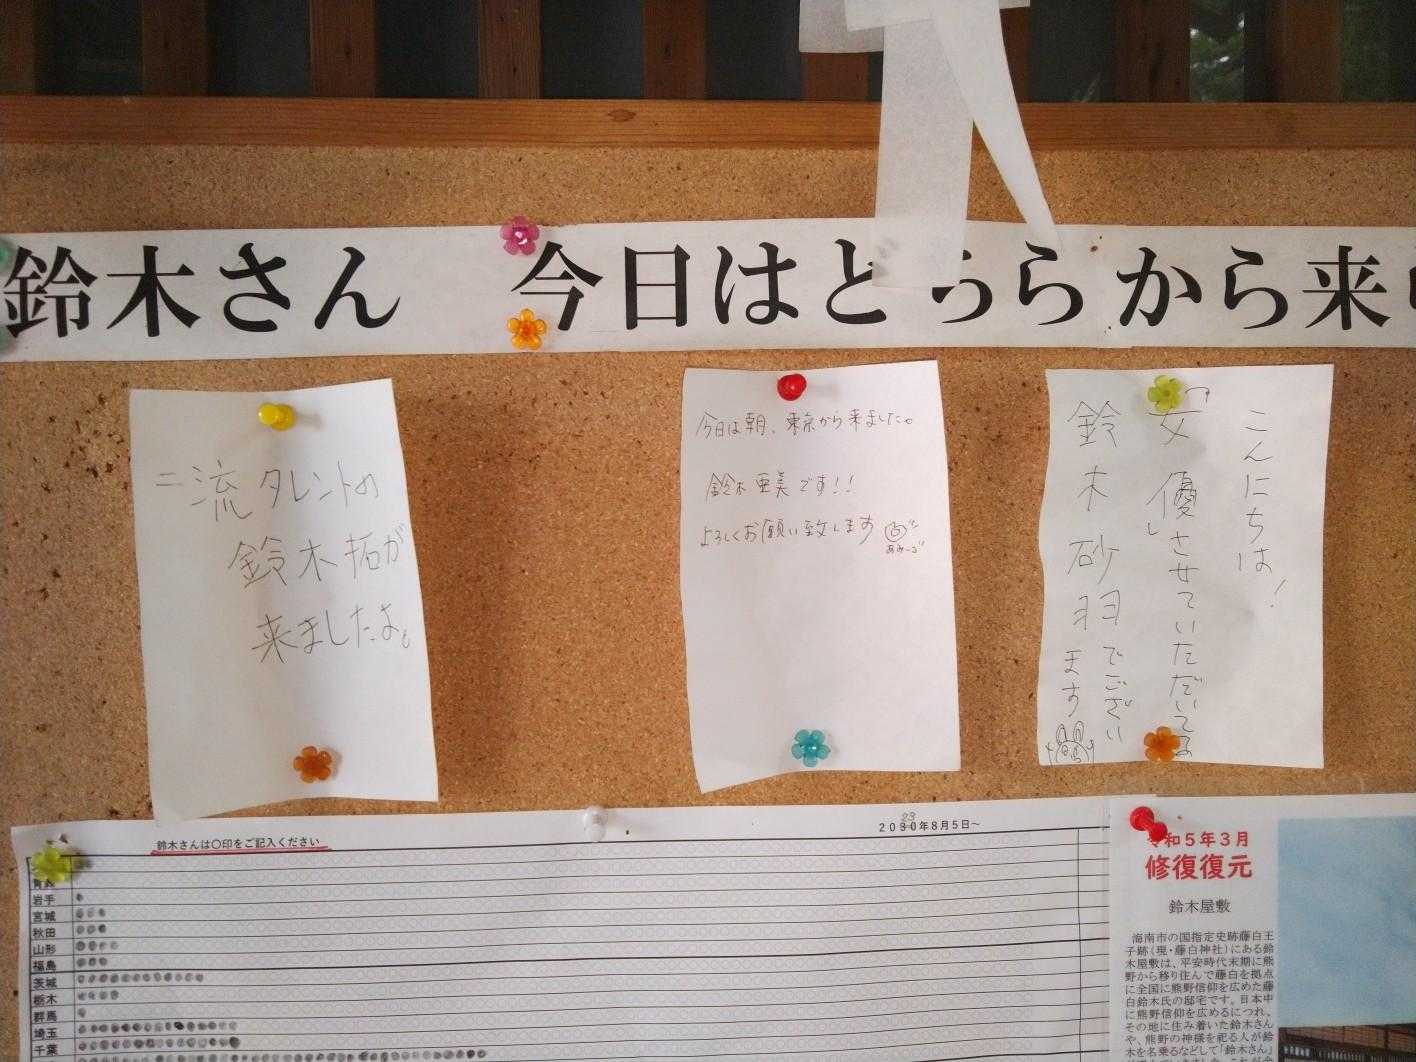 鈴木さん 今日はどちらから来
二流タレントの
鈴木拓が
来ましたよ。
今日は朝、東京から来ました。
鈴木亜美です!!
よろしくお願い致します
あみーゴ
こんにちは!
「女優」させていただいてる
鈴木砂羽でござい
ます
鈴木さんは〇印をご記入ください
23
2030年8月5日~
青森
岩手
宮城
秋田
山形
福島
茨城
栃木
群馬
埼玉
千葉
令和5年3月
修復復元
鈴木屋敷
海南市の国指定史跡藤白王
子跡(現・藤白神社)にある鈴
木屋敷は、平安時代末期に熊
野から移り住んで藤白を拠点
に全国に熊野信仰を広めた藤
白鈴木氏の邸宅です。日本中
に熊野信仰を広めるにつれ、
その地に住み着いた鈴木さん
や、熊野の神様を祀る人が鈴
木を名乗るなどして「鈴木さん」